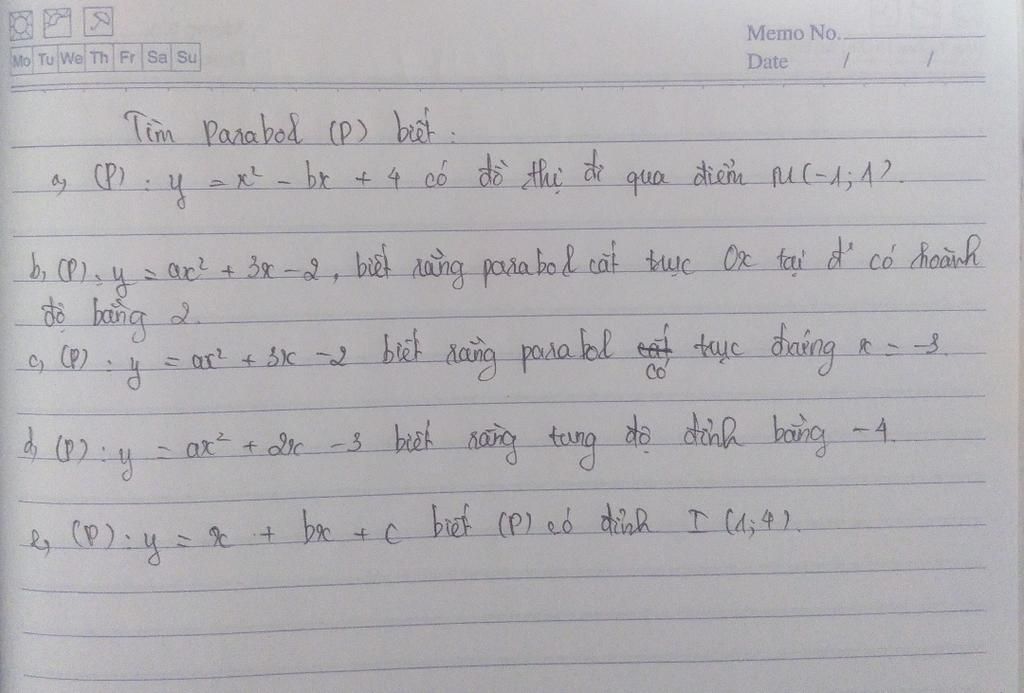 Memo No.
Mo Tu We Th Fr Sa Su
Date / /
Tìm Parabol (P) biết:
a, (P): y = x² - bx + 4 có đồ thị đi qua điểm M(-1; 1).
b, (P): y = ax² + 3x - 2, biết rằng parabol cắt trục Ox tại đ' có hoành
độ bằng 2.
c, (P): y = ax² + 3x - 2 biết rằng parabol có trục đxứng x = -3.
d, (P): y = ax² + 2x - 3 biết rằng tung độ đỉnh bằng -4.
e, (P): y = x + bx + c biết (P) có đỉnh I (1; 4).